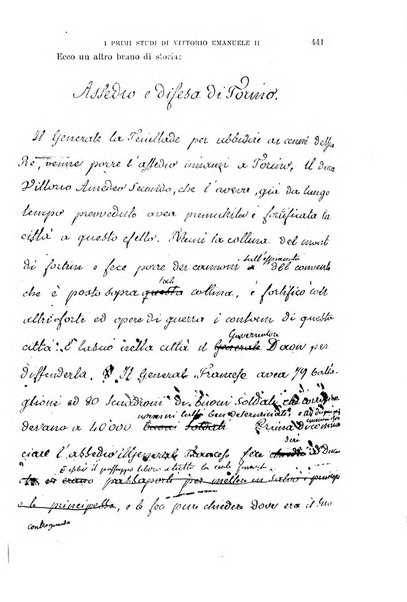 I PRIMI STUDI DI VITTORIO EMANUELE II 441
Ecco un altro brano di storia:
Assedio e difesa di Torino.
Il Generale la Feuillade per ubbidire ai cenni del suo
Re, venne porre l'assedio innanzi a Torino, il duca
Vittorio Amedeo Secondo, che l'aveva, già da lungo
tempo preveduto avea premunita e fortificata la
città a questo effetto. Munì la collina del monti
di fortini e fece porre dei cannoni sull'eminenza del convento
che è posto sopra questa collina, e fortificò con
altri forti ed opere di guerra i contorni di questa
città. E lasciò nella città il Generale Governatore Daun per
diffenderla. Il Generale Francese avea 79 batta-
glioni ed 80 squadroni di buoni soldati che
devano a 40000 buoni soldati uomini tutti ben Prima di comin
ciare l'assedio il Generale Francese fece
passaporti per mettere in salvo i principi
e le principesse, e le fece pure chiedere dov'era il suo